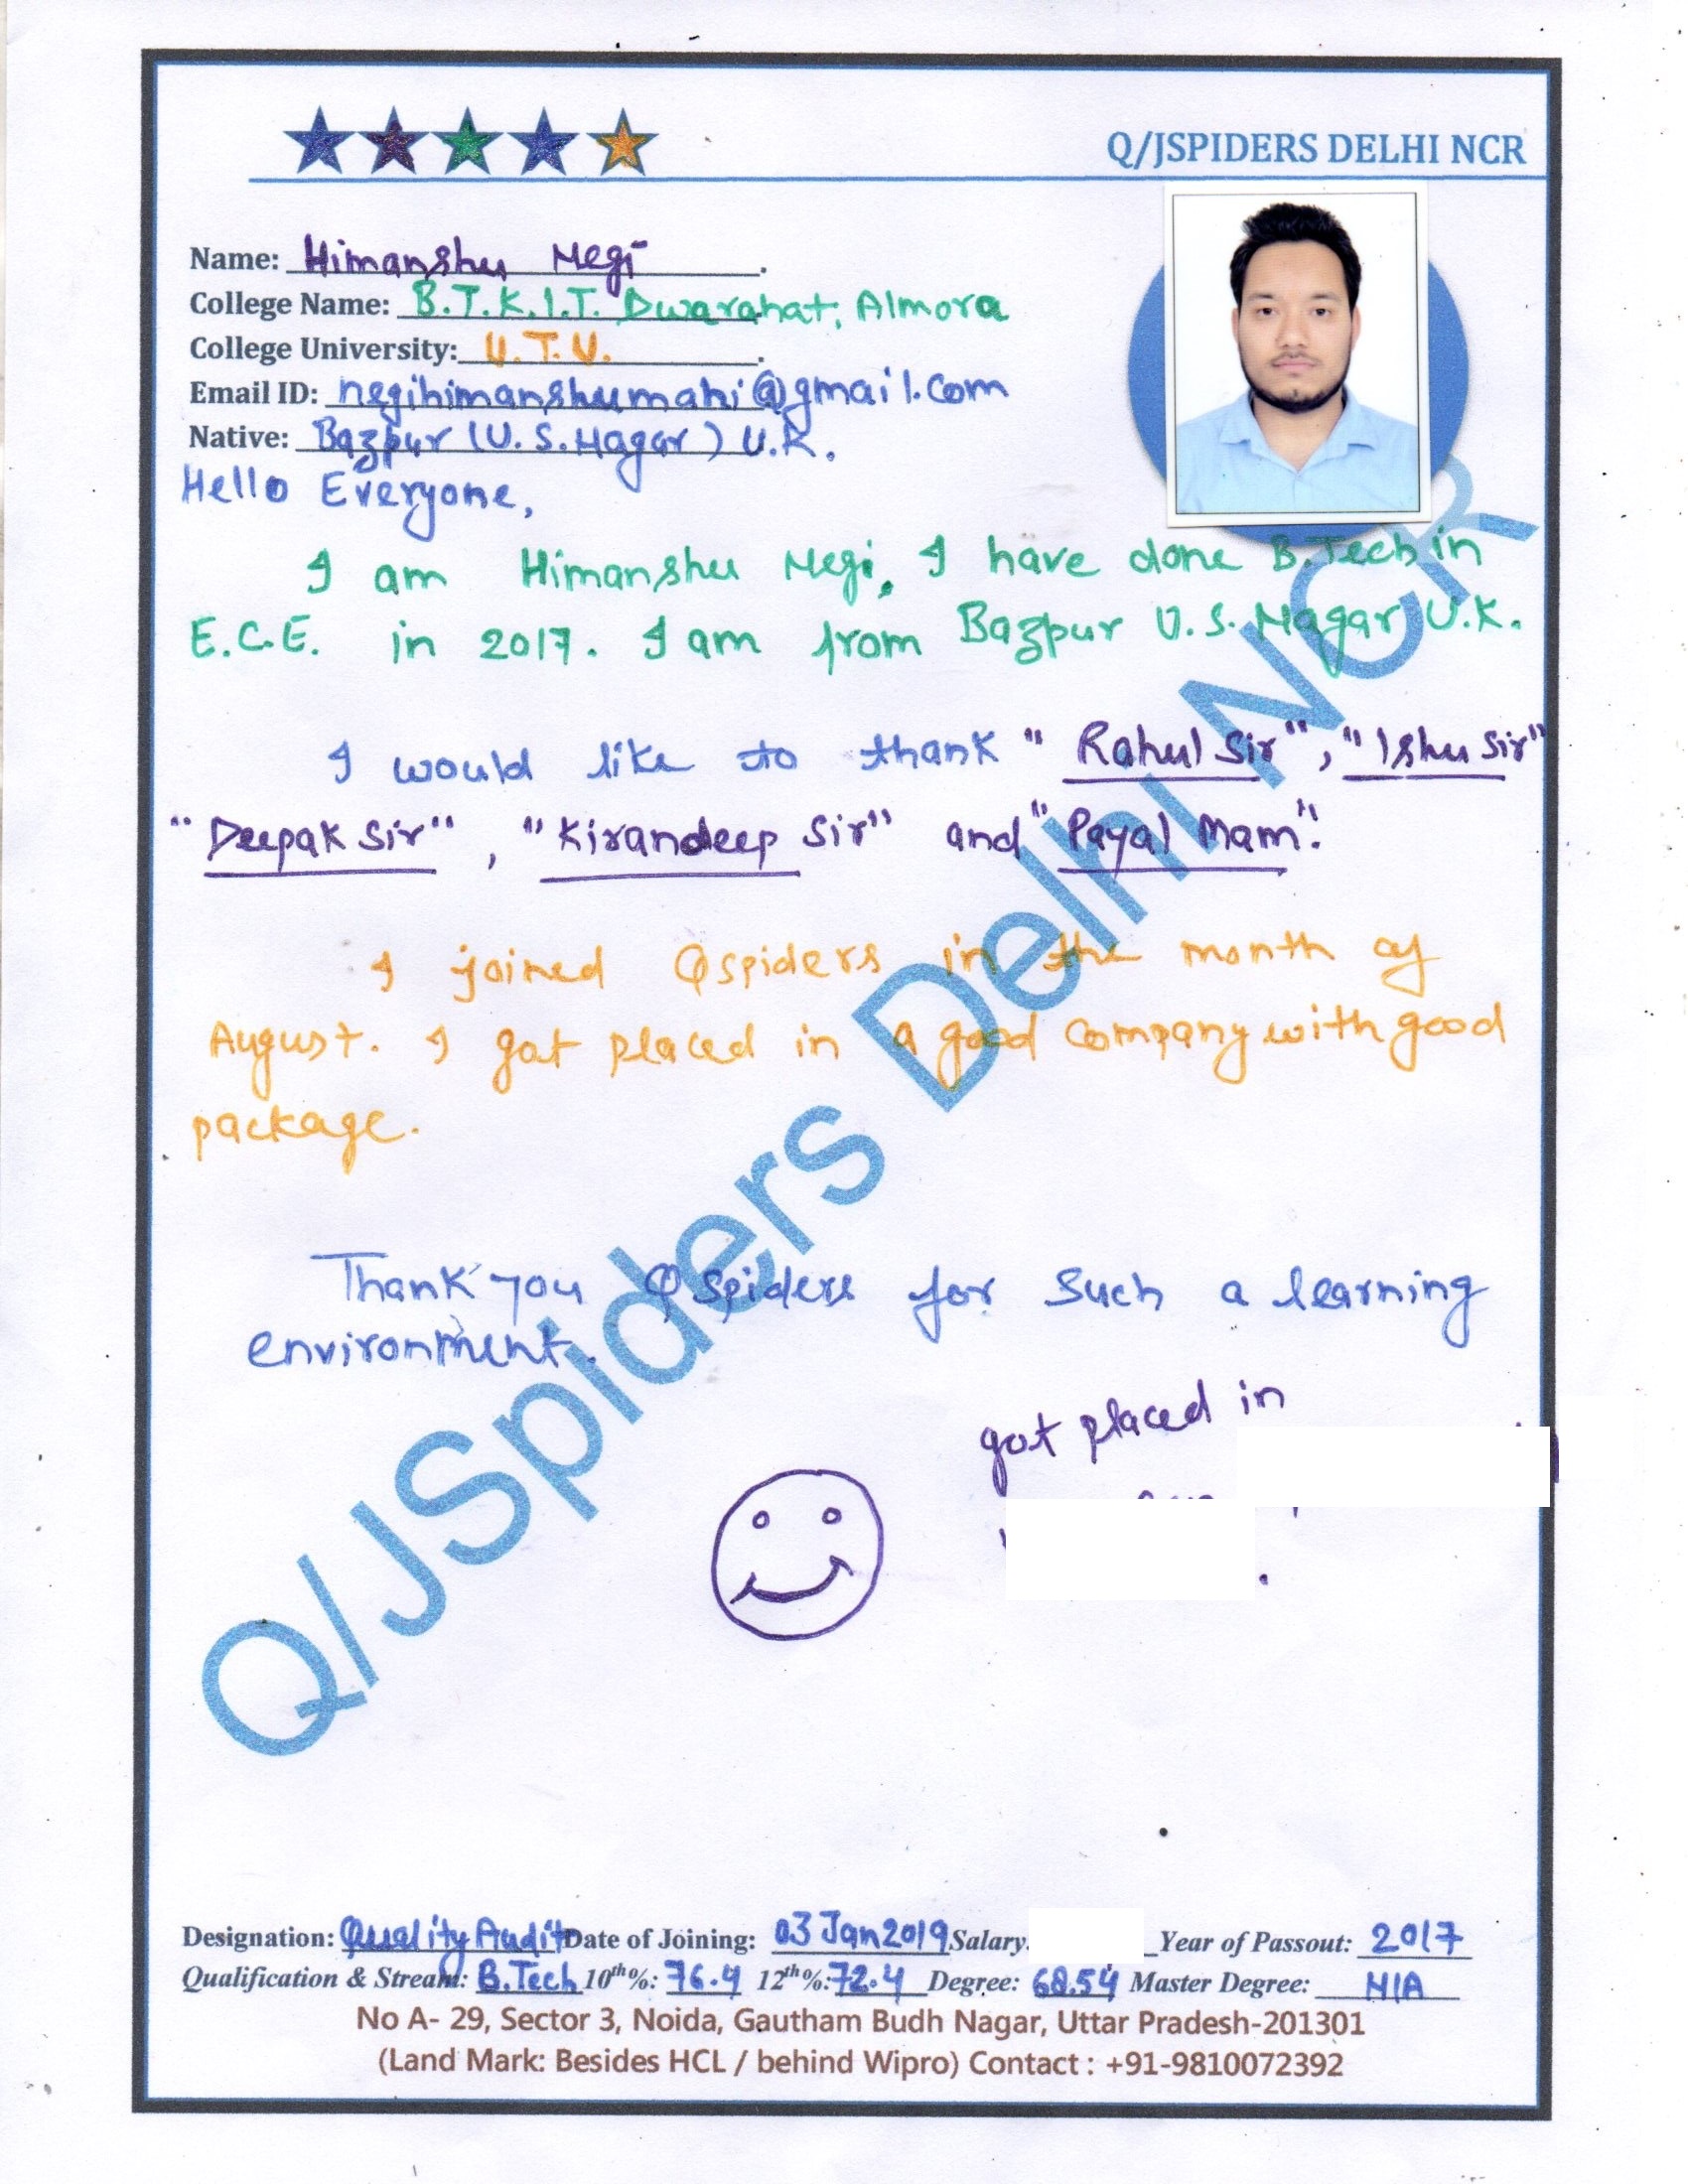 Q/JSPIDERS DELHI NCR
Name: Himanshu Negi.
College Name: B.T.K.I.T. Dwarahat, Almora
College University: U.T.U.
Email ID: negihimanshumahi@gmail.com
Native: Bazpur (U.S.Nagar) U.K.
Hello Everyone,
I am Himanshu Negi. I have done B.Tech in
E.C.E. in 2017. I am from Bazpur U.S. Nagar U.K.
I would like to thank "Rahul Sir", "Ishu Sir"
"Deepak Sir", "Kirandeep Sir" and "Payal Mam".
I joined Qspiders in the month of
August. I got placed in a good company with good
package.
Thank you QSpiders for such a learning
environment.
got placed in
Q/JSpiders Delhi NCR
Designation: Quality Audit Date of Joining: 03 Jan 2019 Salary. Year of Passout: 2017
Qualification & Stream: B.Tech 10th%: 76.4 12th%: 72.4 Degree: 68.54 Master Degree: N/A
No A- 29, Sector 3, Noida, Gautham Budh Nagar, Uttar Pradesh-201301
(Land Mark: Besides HCL / behind Wipro) Contact : +91-9810072392